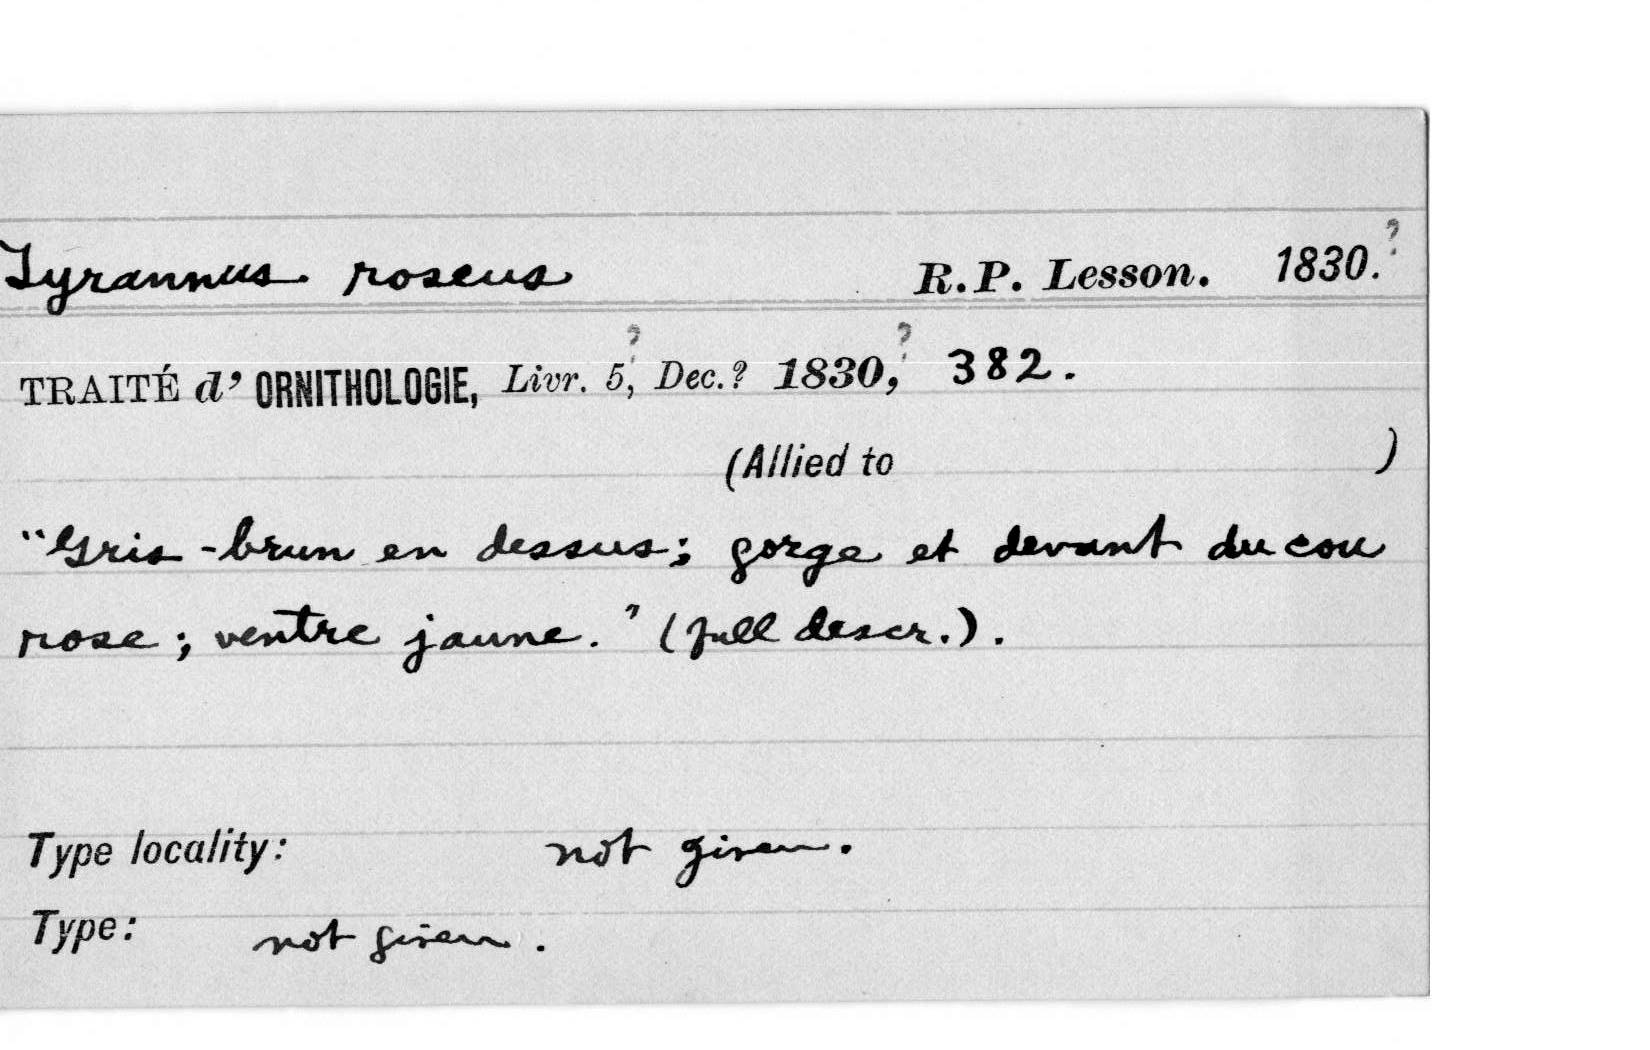 Tyrannus roseus R.P. Lesson. 1830.?
TRAITÉ d' ORNITHOLOGIE, Livr. 5,? Dec.? 1830,? 382.
(Allied to )
"Gris-brun en dessus; gorge et devant du cou
rose; ventre jaune." (full descr.).
Type locality: not given.
Type: not given.